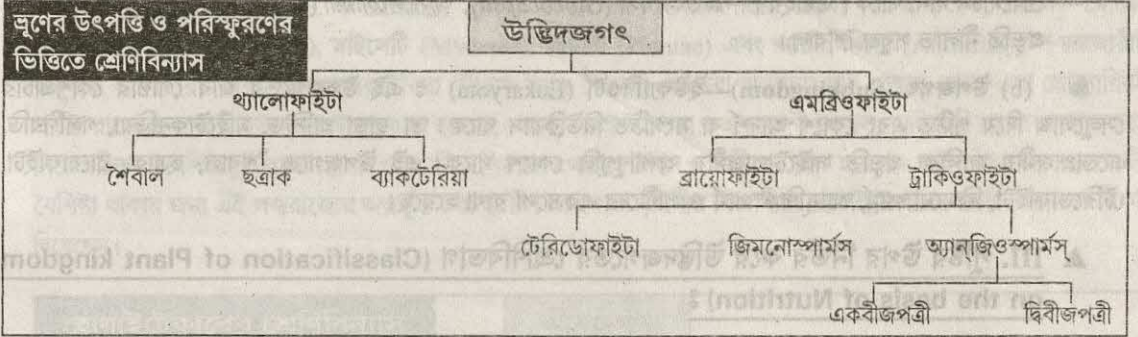 ভ্রূণের উৎপত্তি ও পরিস্ফুরণের
ভিত্তিতে শ্রেণিবিন্যাস
উদ্ভিদজগৎ
থ্যালোফাইটা
এমব্রিওফাইটা
শৈবাল
ছত্রাক
ব্যাকটেরিয়া
ব্রায়োফাইটা
ট্রাকিওফাইটা
টেরিডোফাইটা
জিমনোস্পার্মস
অ্যানজিওস্পার্মস
একবীজপত্রী
দ্বিবীজপত্রী